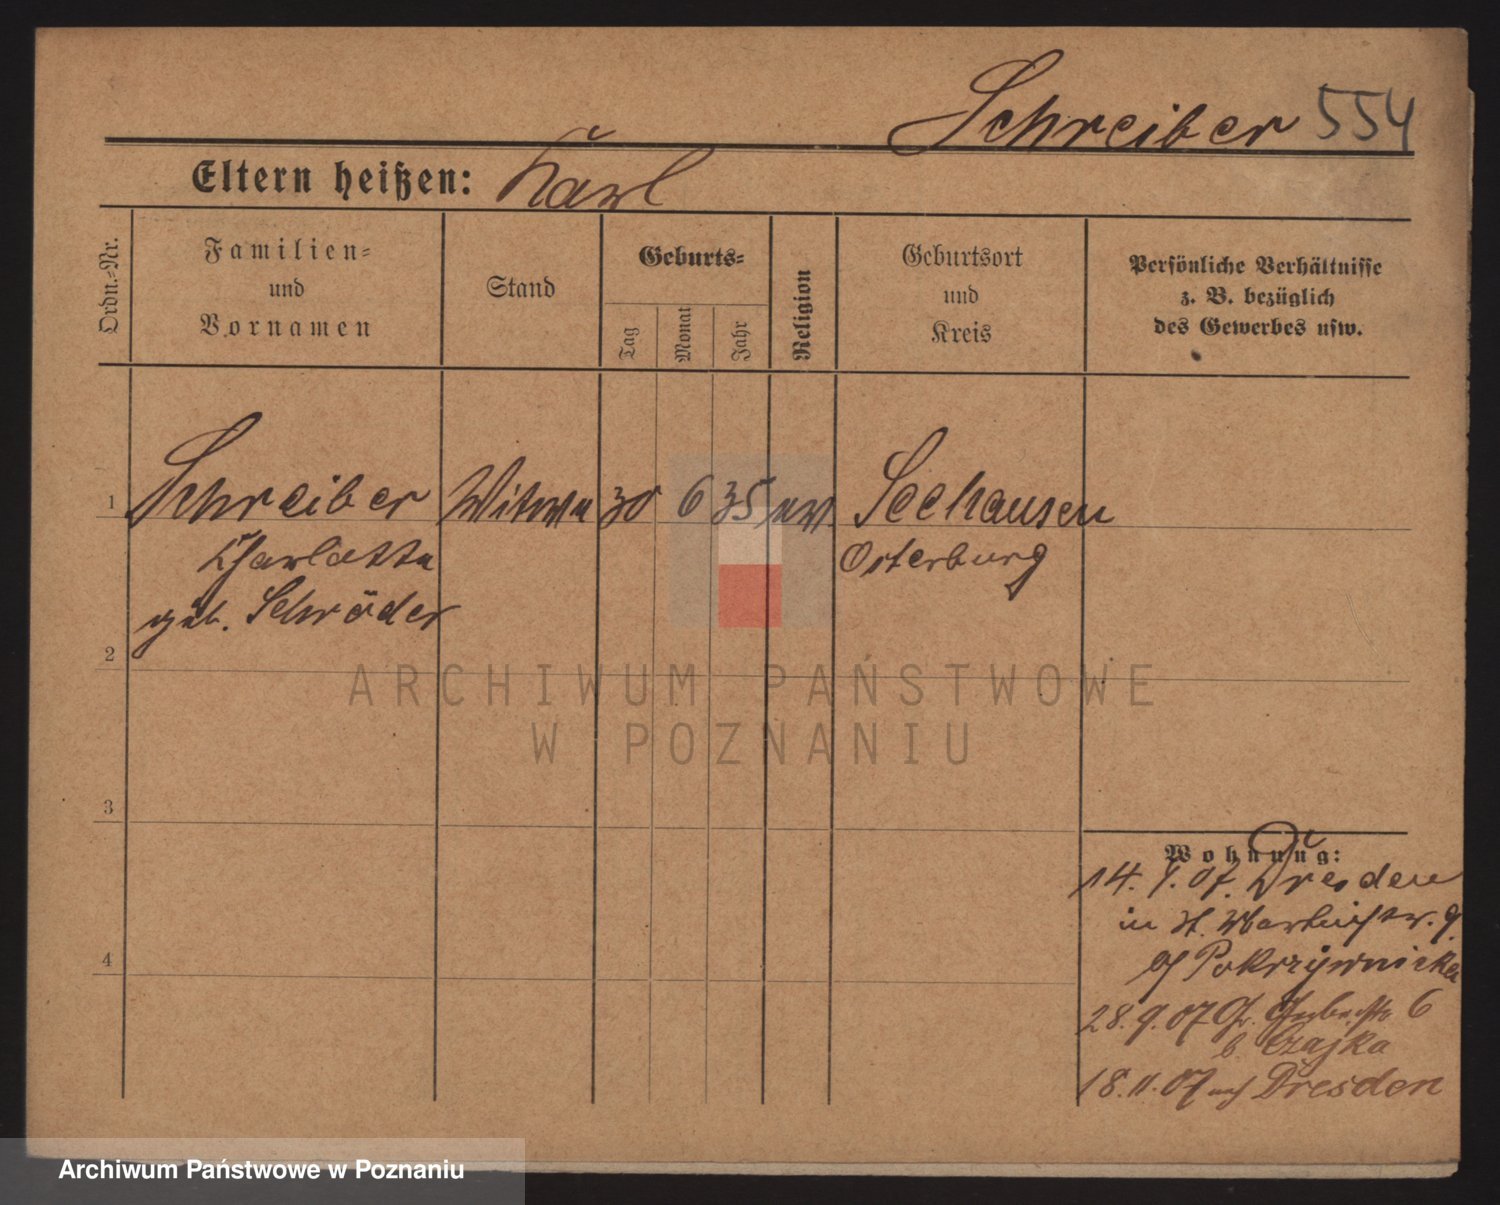 Schreiber 554
Eltern heißen: Karl
Ordn.-Nr.
Familien-
und
Vornamen
Stand
Geburts-
Tag
Monat
Jahr
Religion
Geburtsort
und
Kreis
Persönliche Verhältnisse
z. B. bezüglich
des Gewerbes usw.
1 Schreiber Witwe 30 6 35 ev. Seehausen
Charlotte Osterburg
geb. Schröder
2
3
4
Wohnung:
14. 9. 07. Dresden
in St. Martinstr. 9
Pokrzywnicka
28. 9. 07 Gr. 6
b. Czajka
18. 11. 07 nach Dresden
ARCHIWUM PAŃSTWOWE
W POZNANIU
Archiwum Państwowe w Poznaniu